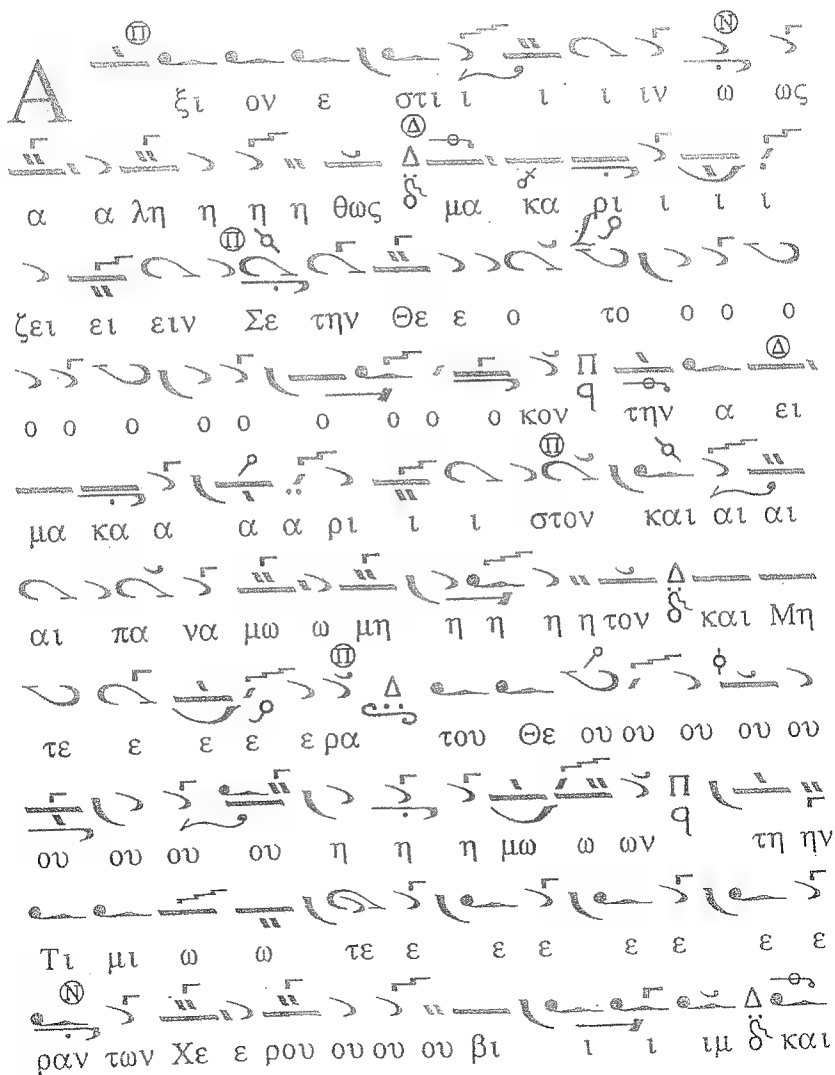 Α ξι ον ε στι ι ι ι ιν ω ως
α α λη η η η θως μα κα ρι ι ι ι
ζει ει ειν Σε την Θε ε ο το ο ο ο
ο ο ο ο ο ο ο ο ο κον την α ει
μα κα α α α ρι ι ι στον και αι αι
αι πα να μω ω μη η η η η τον και Μη
τε ε ε ε ε ρα του Θε ου ου ου ου ου
ου ου ου ου η η η μω ω ων τη ην
Τι μι ω ω τε ε ε ε ε ε ε ε
ραν των Χε ε ρου ου ου ου βι ι ι ιμ και